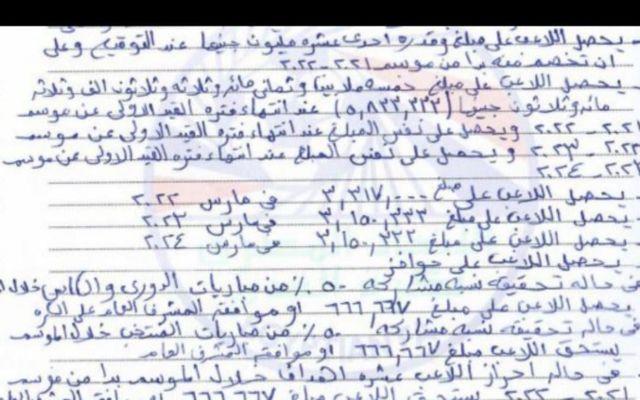 يحصل اللاعب على مبلغ وقدره احدى عشره مليون جنيها عند التوقيع وعلى
ان تخصم منه بدا من موسم ٢٠٢١-٢٠٢٢
يحصل اللاعب على مبلغ خمسه ملايين وثمانى مائه وثلاثه وثلاثون الف وثلاثه
مائه وثلاثون جنيها (٥,٨٣٣,٣٣٣) عند انتهاء فتره القيد الاولى عن موسم
٢٠٢٢ ويحصل على نفس المبلغ عند انتهاء فتره القيد الاولى عن موسم
٢٠٢٣ ويحصل على نفس المبلغ عند انتهاء فتره القيد الاولى عن موسم
٢٠٢٤
يحصل اللاعب على مبلغ ٣,٣١٧,٠٠٠ فى مارس ٢٠٢٢
يحصل اللاعب على مبلغ ٣,١٥٠,٣٣٣ فى مارس ٢٠٢٣
يحصل اللاعب على مبلغ ٣,١٥٠,٣٣٣ فى مارس ٢٠٢٤
يحصل اللاعب على حوافز
فى حاله تحقيقه نسبه مشاركه ٥٠٪ من مباريات الدورى والكاس خلال
يحصل اللاعب على مبلغ ٦٦٦,٦٦٧ او موافقة المشرف العام على الكره
فى حاله تحقيقه نسبه مشاركه ٥٠٪ من مباريات المنتخب خلال الموسم
يستحق اللاعب مبلغ ٦٦٦,٦٦٧ او موافقه المشرف العام
فى حاله احراز اللاعب عشره اهداف خلال الموسم بدا من موسم
٢٠٢١-٢٠٢٢ يستحق اللاعب مبلغ ٦٦٦,٦٦٧